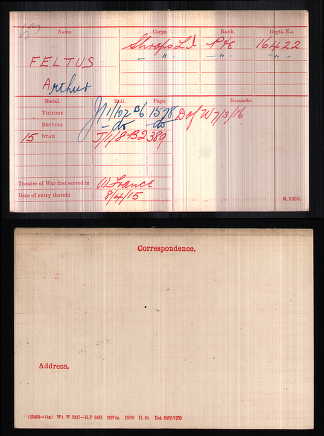 Name. Corps. Rank. Regtl. No.
FELTUS Shrops L.I. Pte 16422
—"— —"—
Arthur
Medal. Roll. Page. Remarks.
Victory J/1/102 B6 1578 D of W 7/3/16
British —do— —do—
15 Star J/1/8 B2 389
Theatre of War first served in W. France
Date of entry therein 8/4/15
Correspondence.
Address.